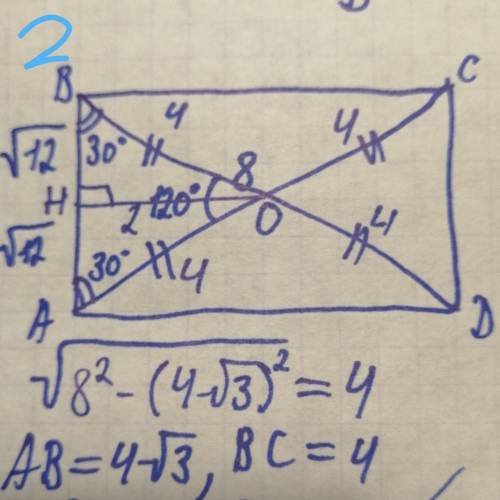 2
B
C
4
4
√12
30°
8
H
2
120°
O
4
√12
30°
4
A
D
√8² - (4√3)² = 4
AB = 4√3, BC = 4